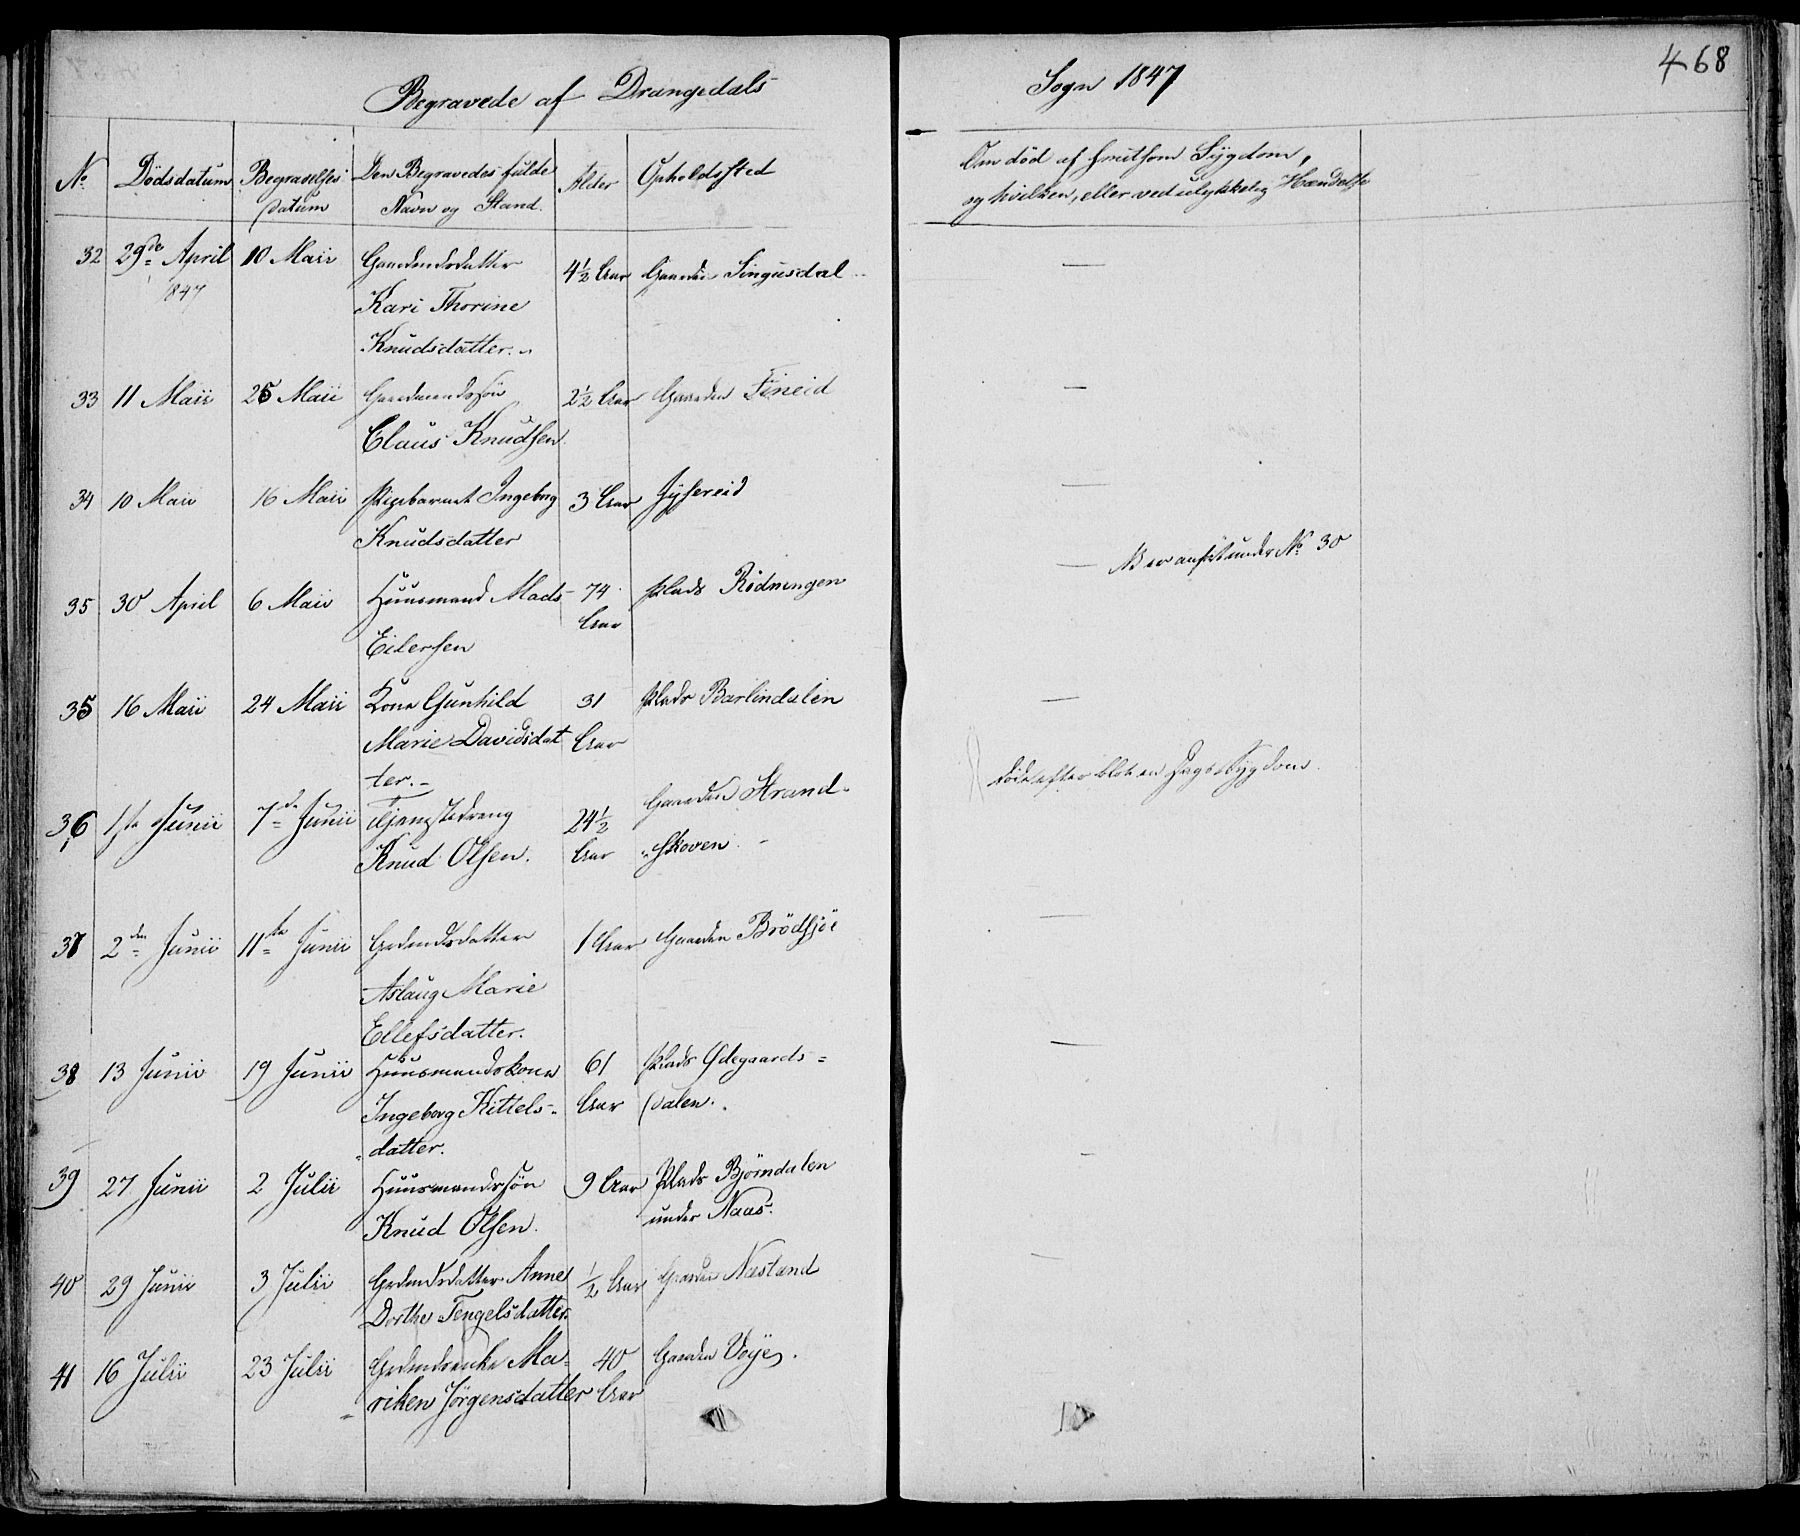 468
Begravede af Drangedals Sogn 1847
No Dödsdatum Begravelses Den Begravedes fulde Alder Opholdssted Om död af smitsom Sÿgdom,
datum Navn og Stand. og hvilken, eller ved ulykkelig Hændelse
32 29de April 10 Maii Gaardmdsdatter 4½ Aar Gaarden Singusdal —
1847 Kari Thorine
Knudsdatter.
33 11 Maii 25 Maii Gaardmandssön 2½ Aar Gaarden Eineid —
Claus Knudsen
34 10 Maii 16 Maii Pigebarnet Ingeborg 3 Aar —
Knudsdatter
35 30 April 6 Maii Huusmand Mads 74 Plads Rödningen — NB er anført under No 30
Eilersen Aar
35 16 Maii 24 Maii Kone Gunhild 31 Plads Barlindalen —
Marie Davidsdat Aar
ter.
36 1ste Junii 7de Junii Tjenestedreng 24½ Gaarden Strand- döde efter blot en Dags Sygdom.
Knud Olsen. Aar skoven
37 2den Junii 11te Junii Grdmdsdatter 1 Aar Gaarden Brödsjöe —
Aslaug Marie
Ellefsdatter.
38 13 Junii 19 Junii Huusmandskone 61 Plads Ødegaards= —
Ingeborg Kittels- Aar dalen.
datter.
39 27 Junii 2 Julii Huusmandssön 9 Aar Plads Björndalen —
Knud Olsen. under Naas.
40 29 Junii 3 Julii Grdmdsdatter Anne ½ Aar Gaarden Næsland —
Dorthe Tengelsdatter.
41 16 Julii 23 Julii Grdmdsenke Ma- 40 Gaarden Voje.
riken Jörgensdatter Aar